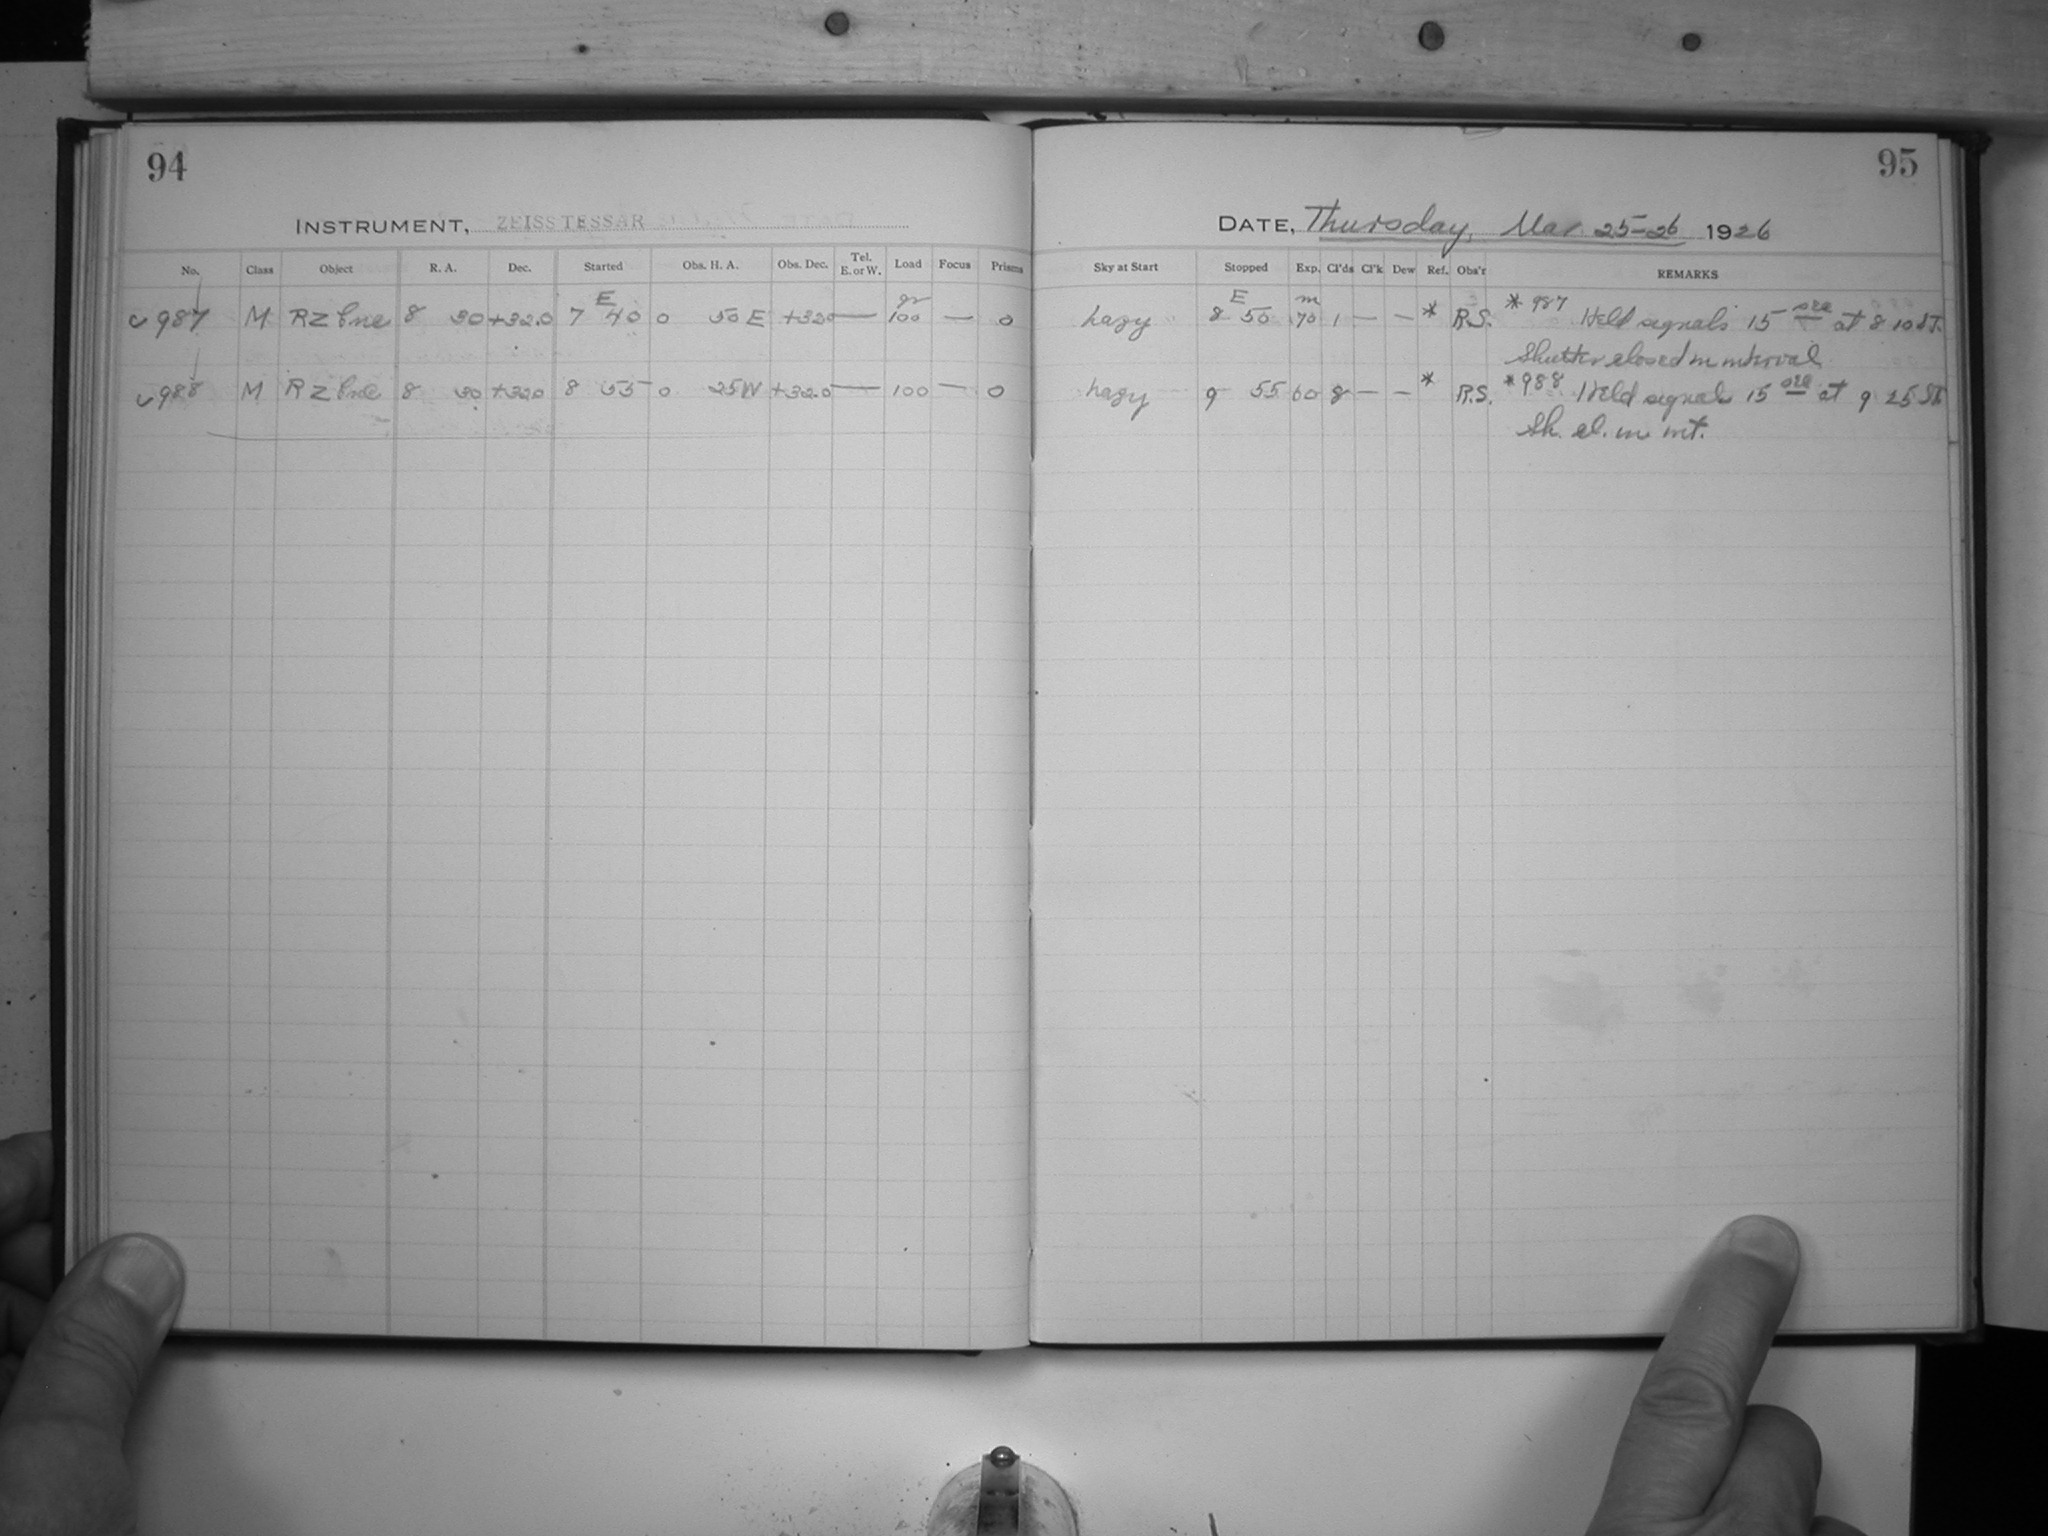 94
95
INSTRUMENT, ZEISS TESSAR
DATE, Thursday, Mar 25-26 1926
No. Class Object R. A. Dec. Started Obs. H. A. Obs. Dec. Tel. E. or W. Load Focus Prisms Sky at Start Stopped Exp. Cl'ds Cl'k Dew Ref. Obs'r REMARKS
E gr E m
987 M RZ Cnc 8 30 +32.0 7 40 0 50 E +32.0 — 100 — 0 hazy 8 50 70 1 — — * R.S. *987 Held signals 15 sec at 8 10 ST.
Shutter closed in interval
988 M RZ Cnc 8 30 +32.0 8 55 0 25 W +32.0 — 100 — 0 hazy 9 55 60 8 — — * R.S. *988 Held signals 15 sec at 9 25 ST
Sh. cl. in int.